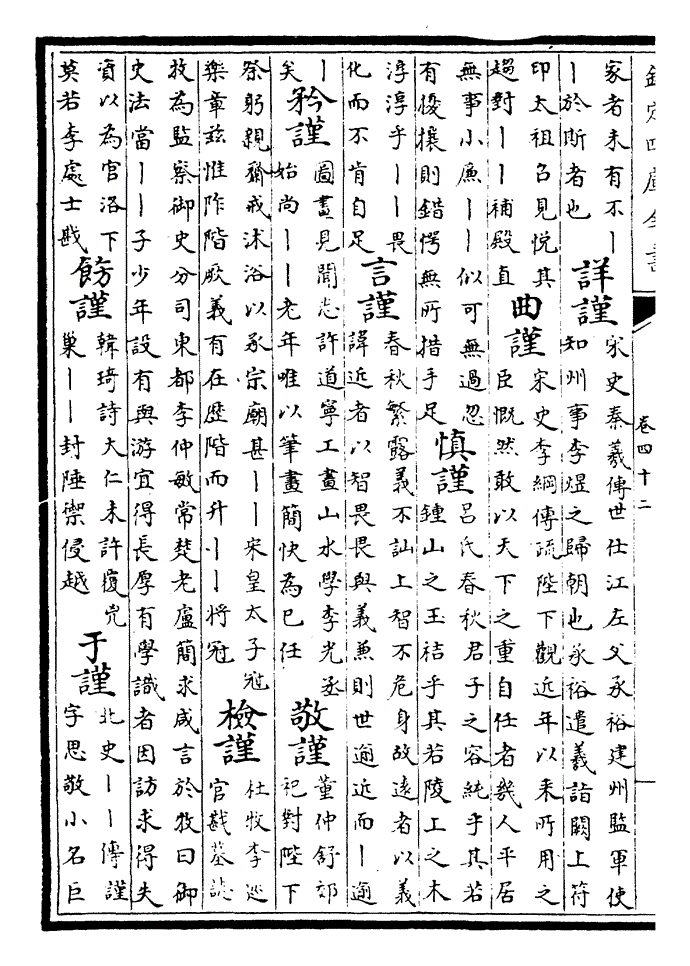 欽定四庫全書
卷四十二
家者未有不丨
丨於斯者也
詳謹
宋史秦羲傳世仕江左父承裕建州監軍使
知州事李煜之歸朝也承裕遣羲詣闕上符
印太祖召見悦其
趨對丨丨補殿直
曲謹
宋史李綱傳疏陛下觀近年以来所用之
臣慨然敢以天下之重自任者幾人平居
無事小廉丨丨似可無過忽
有擾攘則錯愕無所措手足
慎謹
吕氏春秋君子之容純乎其若
鍾山之玉桔乎其若陵上之木
淳淳乎丨丨畏
化而不肯自足
言謹
春秋繁露義不訕上智不危身故逺者以義
諱近者以智畏畏與義兼則世逾近而丨逾
丨
矣
矜謹
圖畫見聞志許道寧工畫山水學李光丞
始尚丨丨老年唯以筆畫簡快為已任
敬謹
董仲舒郊
祀對陛下
祭躬親齋戒沐浴以承宗廟甚丨丨宋皇太子冠
樂章兹惟阼階厥義有在歴階而升丨丨將冠
檢謹
杜牧李廵
官戡墓誌
牧為監察御史分司東都李仲敏常楚老盧簡求咸言於牧曰御
史法當丨丨子少年設有與游宜得長厚有學識者因訪求得失
資以為官洛下
莫若李處士戡
飭謹
韓琦詩大仁未許窺兇
巢丨丨封陲禦侵越
于謹
北史丨丨傳謹
字思敬小名巨